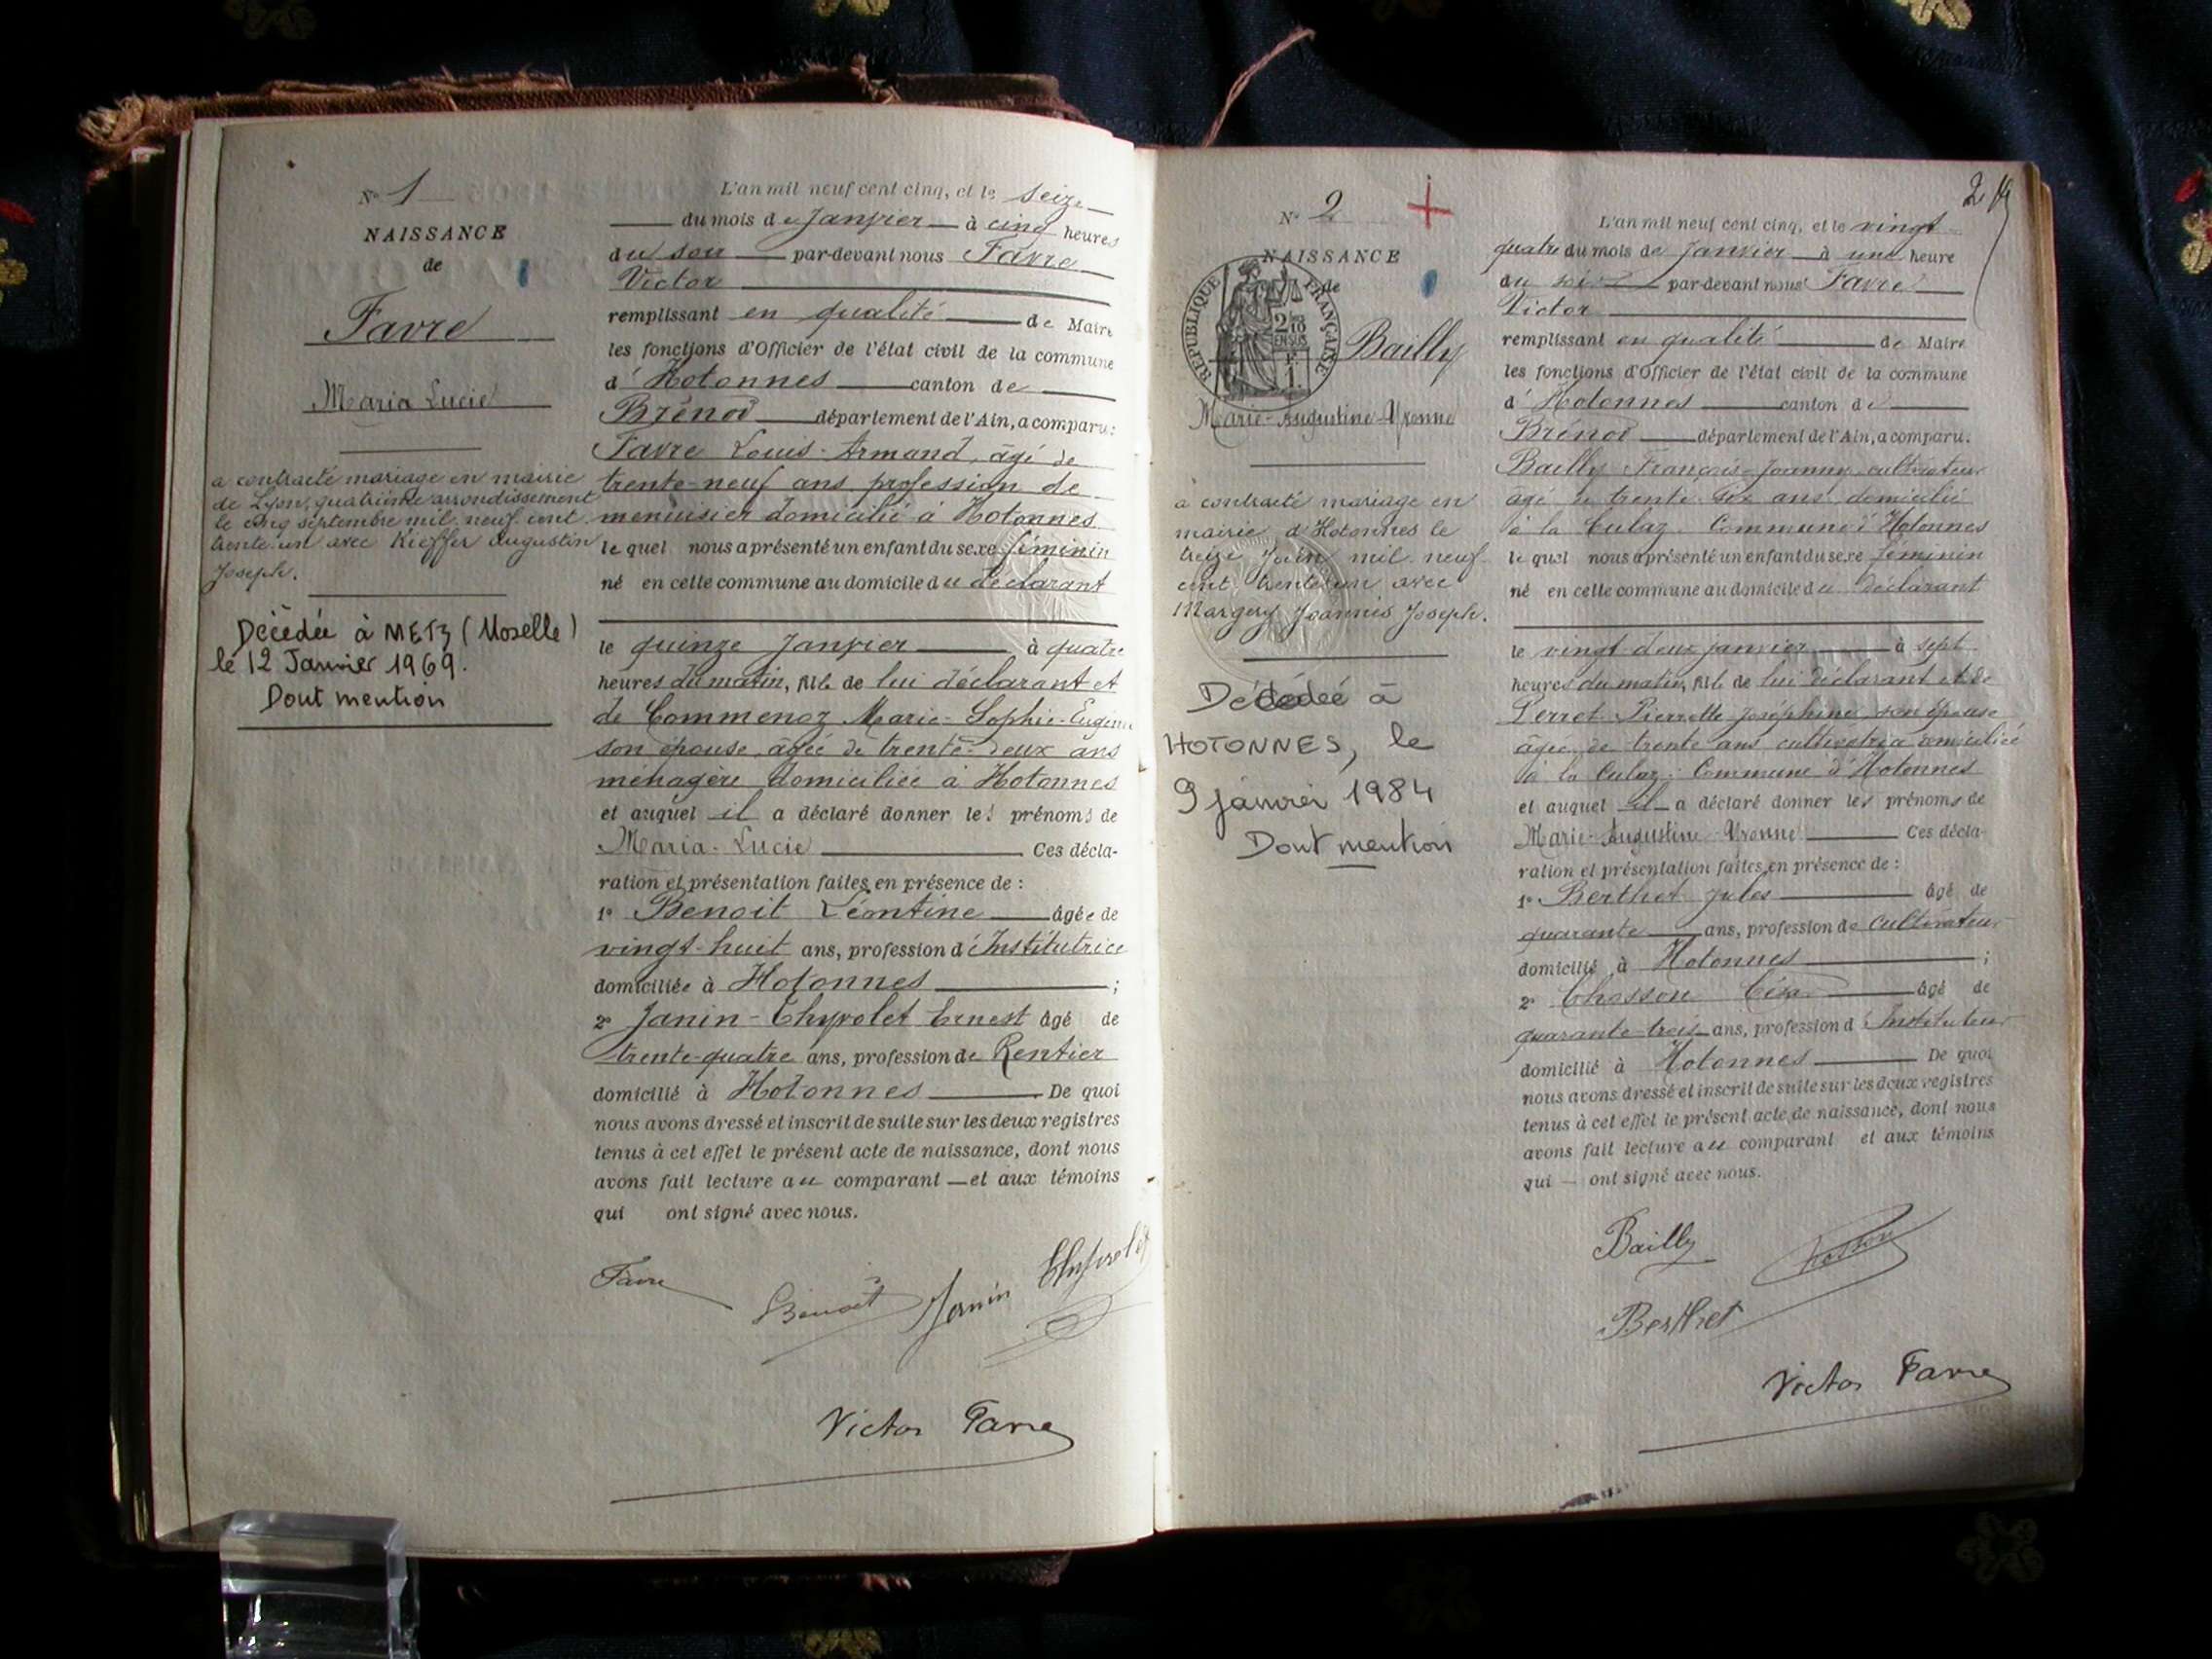 N° 1
NAISSANCE
de
Favre
Maria Lucie
a contracté mariage en mairie
de Lyon, quatrième arrondissement
le cinq septembre mil neuf cent
trente-un avec Kieffer Augustin
Joseph.
Décédée à METZ (Moselle)
le 12 Janvier 1969.
Dont mention
L'an mil neuf cent cinq, et le seize
du mois de Janvier à cinq heures
du soir par-devant nous Favre
Victor
remplissant en qualité de Maire
les fonctions d'Officier de l'état civil de la commune
d'Hotonnes canton de
Brénod département de l'Ain, a comparu:
Favre Louis-Armand, âgé de
trente-neuf ans profession de
menuisier domicilié à Hotonnes
lequel nous a présenté un enfant du sexe féminin
né en cette commune au domicile du déclarant
le quinze Janvier à quatre
heures du matin, fille de lui déclarant et
de Commenoz Marie-Sophie-Eugénie
son épouse, âgée de trente-deux ans
ménagère domiciliée à Hotonnes
et auquel il a déclaré donner les prénoms de
Maria-Lucie Ces décla-
ration et présentation faites en présence de :
1° Benoit Léontine âgée de
vingt-huit ans, profession d'Institutrice
domiciliée à Hotonnes ;
2° Janin-Thyvolet Ernest âgé de
trente-quatre ans, profession de Rentier
domicilié à Hotonnes De quoi
nous avons dressé et inscrit de suite sur les deux registres
tenus à cet effet le présent acte de naissance, dont nous
avons fait lecture au comparant et aux témoins
qui ont signé avec nous.
Favre
Benoit Janin Thyvolet
Victor Favre
2
N° 2
NAISSANCE
de
REPUBLIQUE FRANÇAISE
Bailly
Marie-Augustine-Yvonne
a contracté mariage en
mairie d'Hotonnes le
treize Juin mil neuf
cent trente-un avec
Margery Joannès Joseph.
Décédée à
HOTONNES, le
9 janvier 1984
Dont mention
L'an mil neuf cent cinq, et le vingt
quatre du mois de Janvier à une heure
du soir par-devant nous Favre
Victor
remplissant en qualité de Maire
les fonctions d'Officier de l'état civil de la commune
d'Hotonnes canton de
Brénod département de l'Ain, a comparu.
Bailly François-Joanny cultivateur
âgé de trente-six ans domicilié
à la Culaz Commune d'Hotonnes
lequel nous a présenté un enfant du sexe féminin
né en cette commune au domicile du déclarant
le vingt-deux janvier à sept
heures du matin, fille de lui déclarant et de
Perret Pierrette Joséphine son épouse
âgée de trente ans cultivatrice domiciliée
à la Culaz Commune d'Hotonnes
et auquel il a déclaré donner les prénoms de
Marie-Augustine-Yvonne Ces décla-
ration et présentation faites en présence de :
1° Berthet Jules âgé de
quarante ans, profession de Cultivateur
domicilié à Hotonnes ;
2° Chosson César âgé de
quarante-trois ans, profession d'Instituteur
domicilié à Hotonnes De quoi
nous avons dressé et inscrit de suite sur les deux registres
tenus à cet effet le présent acte de naissance, dont nous
avons fait lecture au comparant et aux témoins
qui ont signé avec nous.
Bailly Chosson
Berthet
Victor Favre